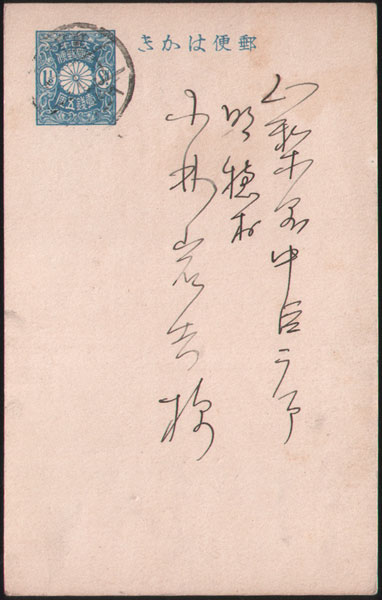 きかは便郵
山梨県中巨マ郡
明穂村
小林岩吉様
1½